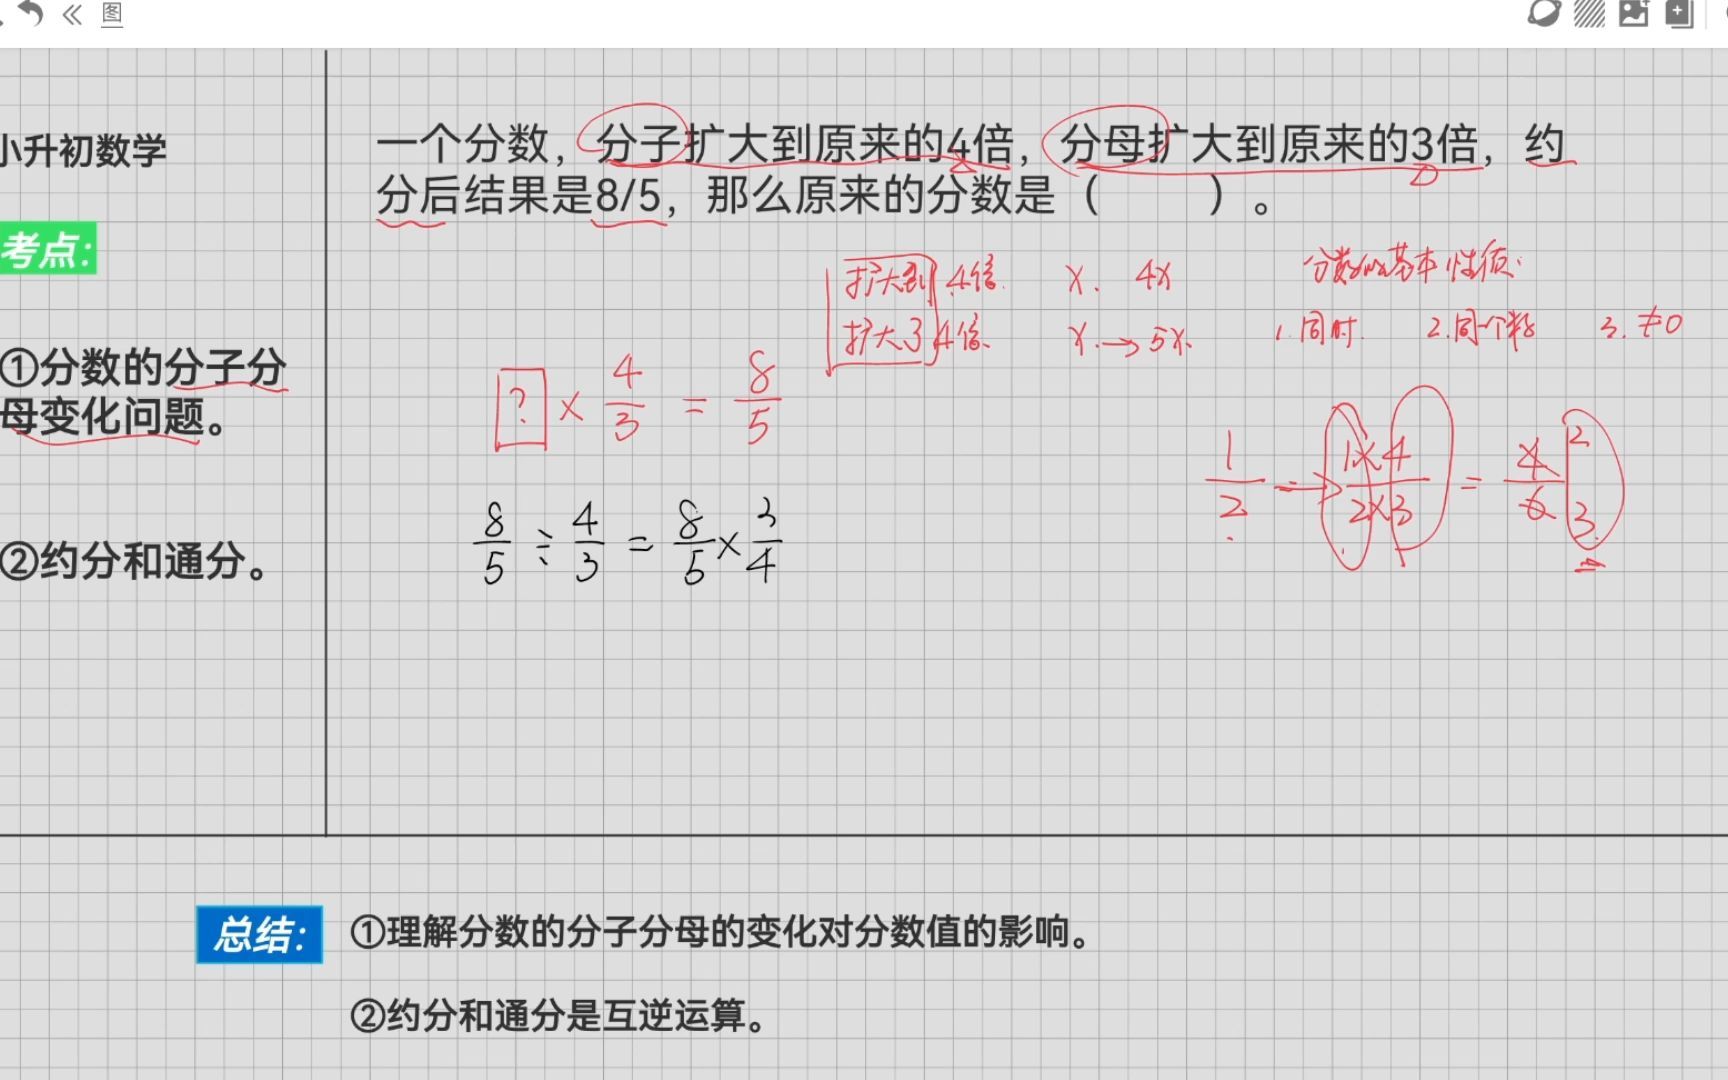 图
小升初数学
考点:
①分数的分子分
母变化问题。
②约分和通分。
一个分数，分子扩大到原来的4倍，分母扩大到原来的3倍，约
分后结果是8/5，那么原来的分数是（　　）。
扩大到 4倍. x. 4x
扩大了 4倍. x.→5x.
分数的基本性质.
1.同时. 2.同一个数 3.≠0
? × 4/3 = 8/5
1/2 → 1×4/2×3 = 4/6 2/3
8/5 ÷ 4/3 = 8/5 × 3/4
总结:
①理解分数的分子分母的变化对分数值的影响。
②约分和通分是互逆运算。